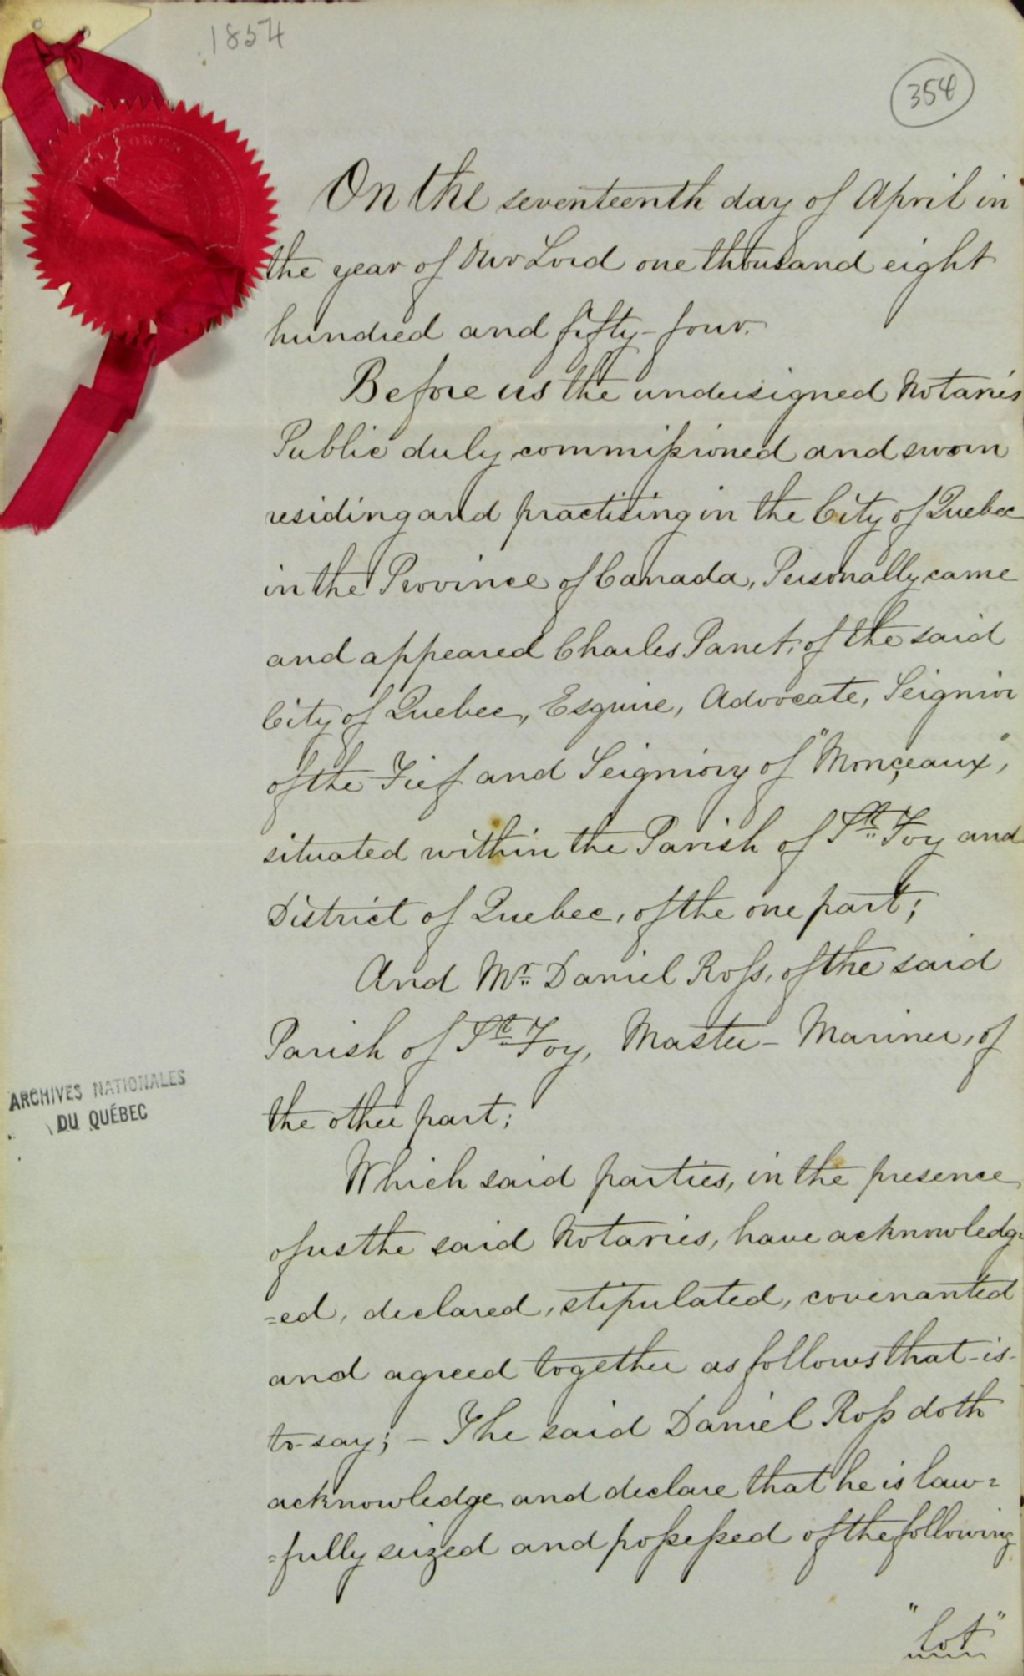 1854
354
On the seventeenth day of April in
the year of Our Lord one thousand eight
hundred and fifty-four.
Before us the undersigned Notaries
Public duly commissioned and sworn
residing and practising in the City of Quebec
in the Province of Canada, Personally came
and appeared Charles Panet, of the said
City of Quebec, Esquire, Advocate, Seignior
of the Fief and Seigniory of "Monçeaux",
situated within the Parish of Ste Foy and
District of Quebec, of the one part;
And Mr. Daniel Ross, of the said
Parish of Ste Foy, Master-Mariner, of
the other part;
ARCHIVES NATIONALES
DU QUÉBEC
Which said parties, in the presence
of us the said Notaries, have acknowledg=
=ed, declared, stipulated, covenanted
and agreed together as follows that-is-
to-say; - The said Daniel Ross doth
acknowledge and declare that he is law=
=fully seized and possessed of the following
"lot"